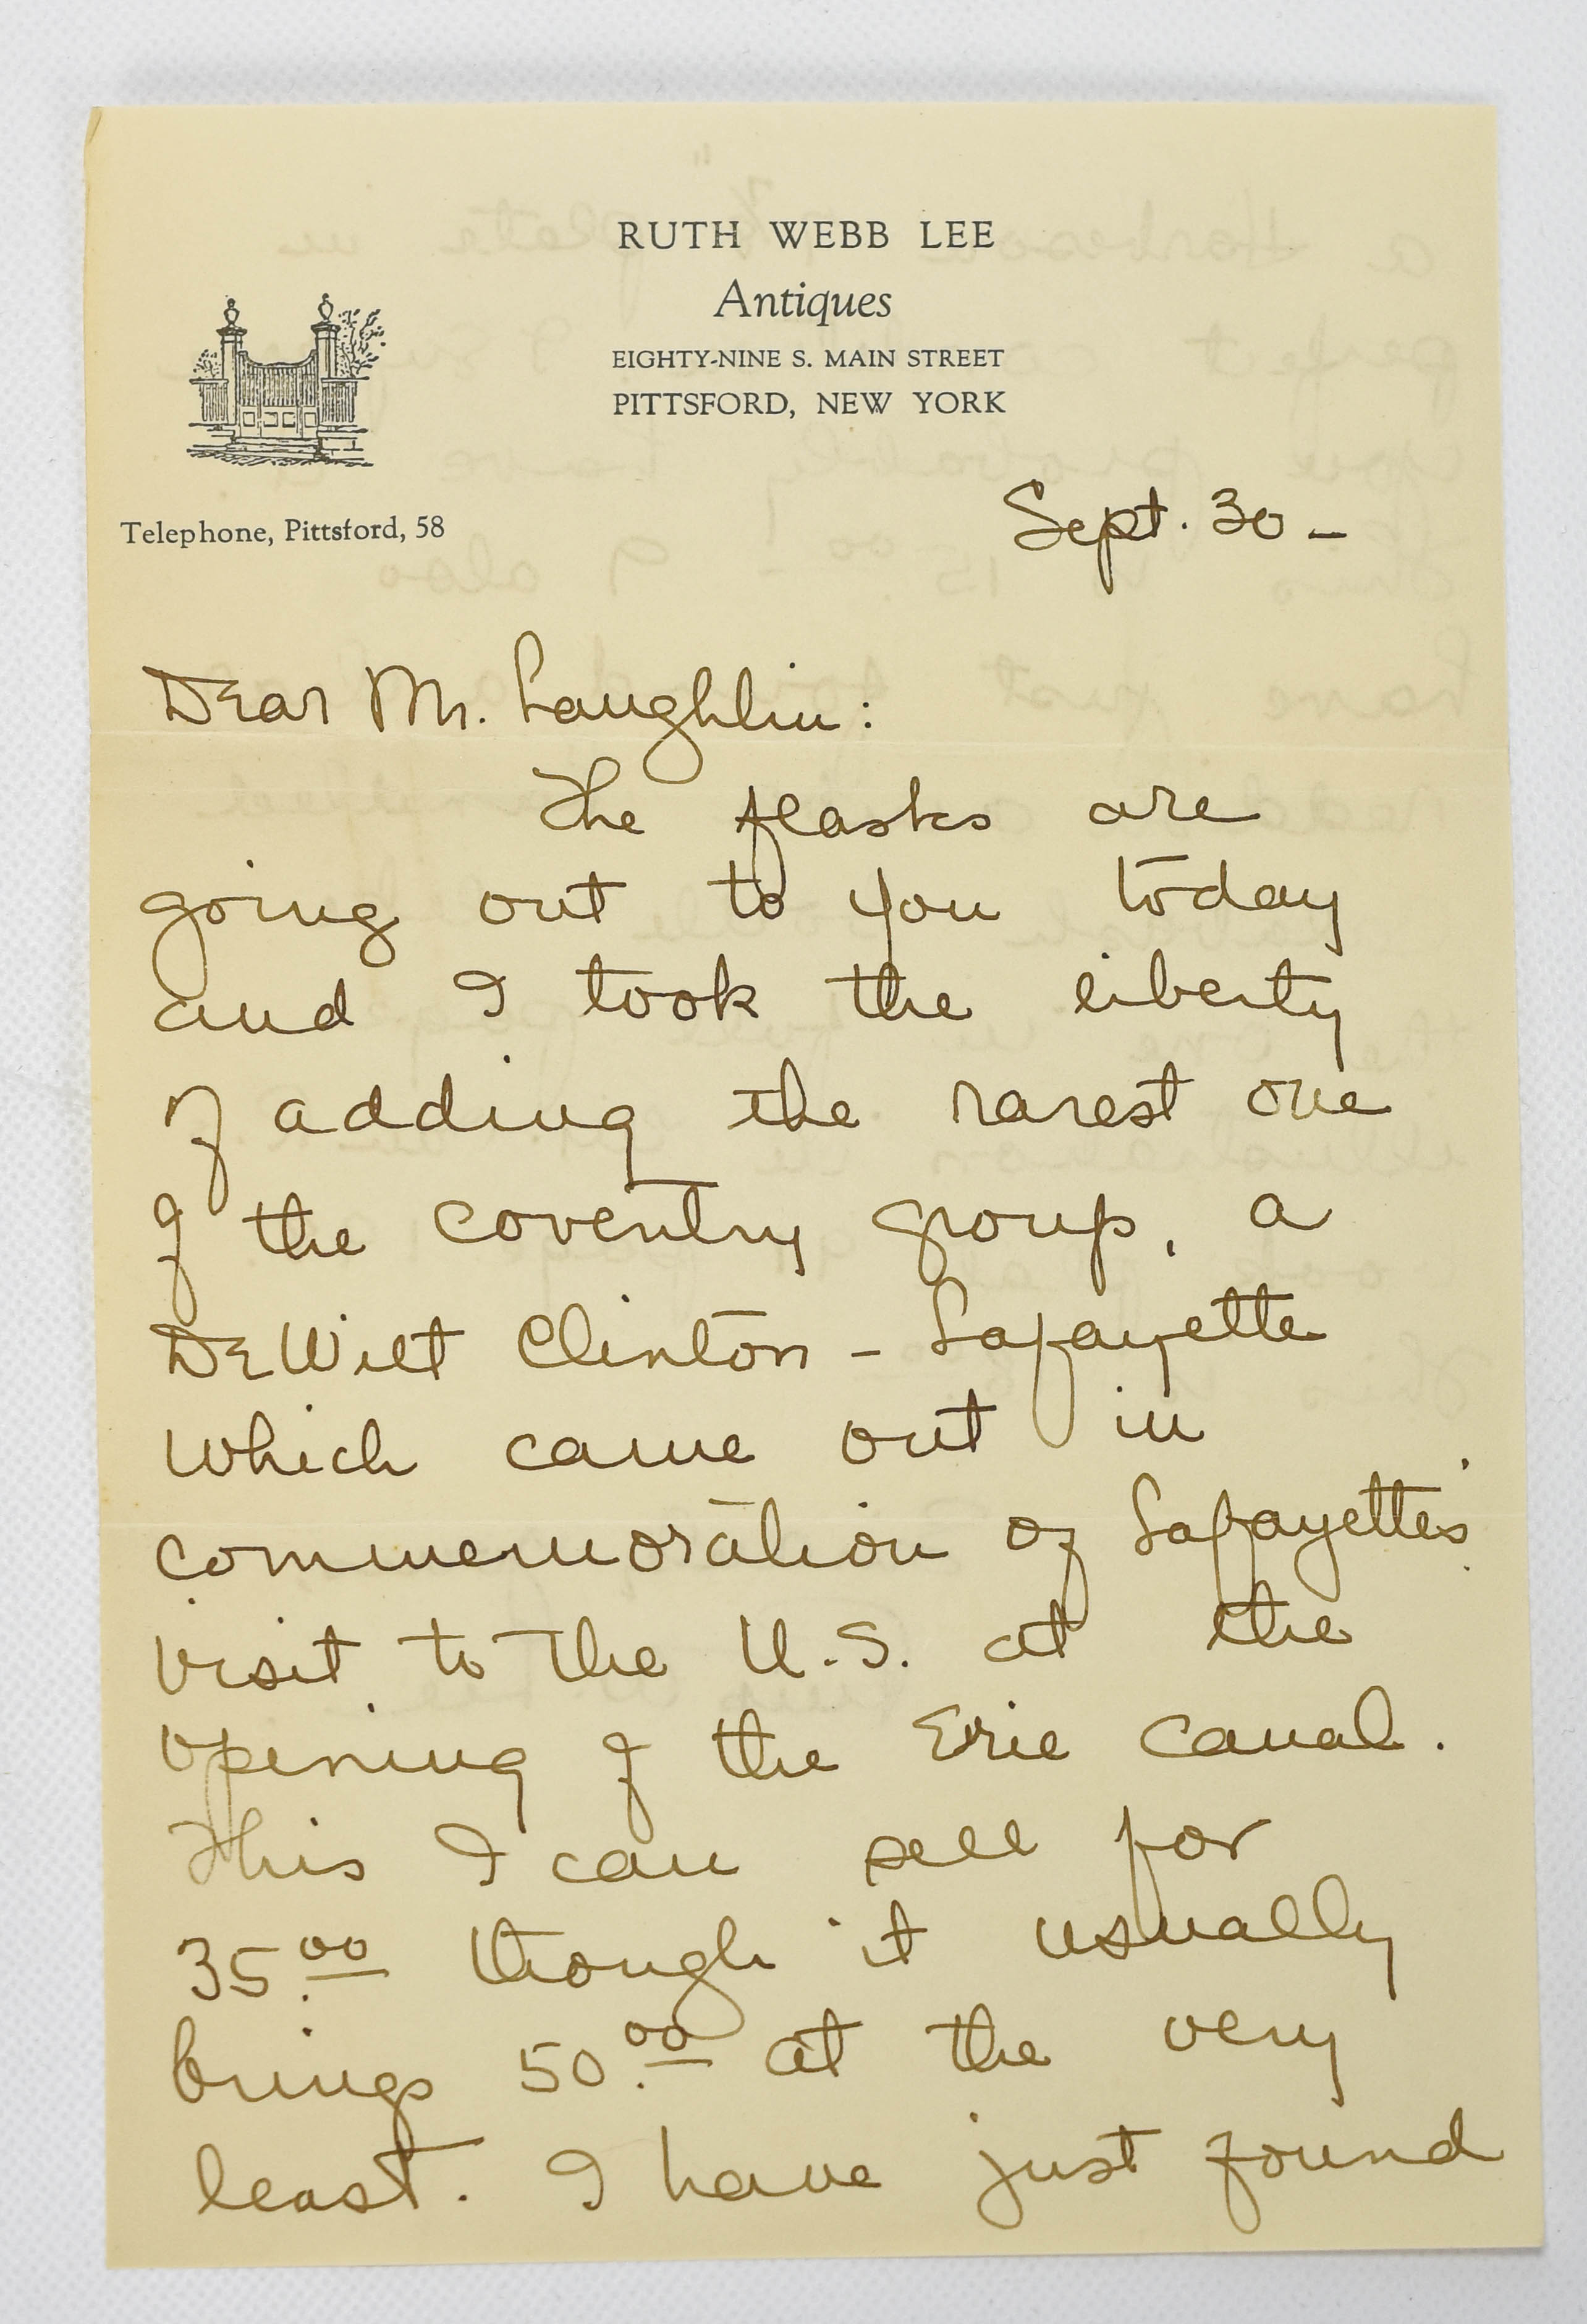 RUTH WEBB LEE
Antiques
EIGHTY-NINE S. MAIN STREET
PITTSFORD, NEW YORK
Telephone, Pittsford, 58
Sept. 30 –
Dear Mr. Laughlin:
The flasks are
going out to you today
and I took the liberty
of adding the rarest one
of the Coventry group, a
DeWitt Clinton – Lafayette
which came out in
commemoration of Lafayette's
visit to the U.S. at the
opening of the Erie Canal.
This I can sell for
35.00 though it usually
brings 50.00 at the very
least. I have just found